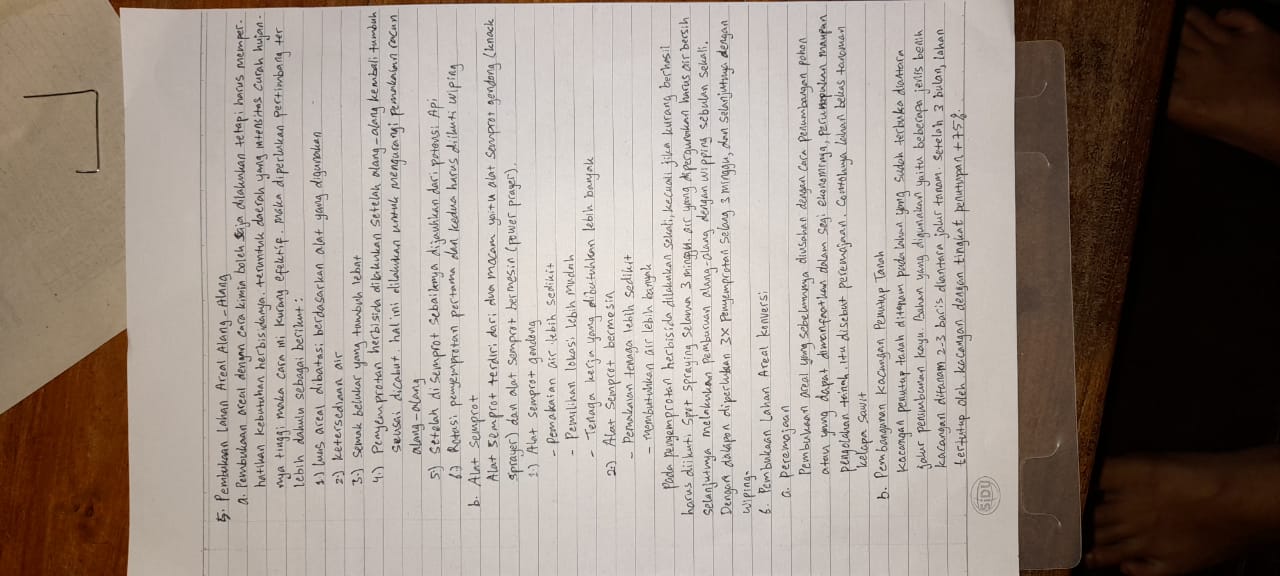 5. Pembukaan Lahan Areal Alang-Alang
a. Pembukaan areal dengan cara kimia boleh saja dilakukan tetapi harus memper-
hatikan kebutuhan herbisidanya. terumtuk daerah yang intensitas curah hujan-
nya tinggi maka cara ini kurang efektif. maka diperlukan pertimbang ter
lebih dahulu sebagai berikut :
1.) Luas areal dibatasi berdasarkan alat yang digunakan
2.) Ketersediaan air
3.) Semak belukar yang tumbuh lebat
4.) Penyemprotan herbisida dilakukan setelah alang-alang kembali tumbuh
seusai dicabut hal ini dilakukan untuk mengurangi pemakaian racun
alang-alang
5.) Setelah di semprot sebaiknya dijauhkan dari potensi Api
6.) Rotasi penyemprotan pertama dan kedua harus diikuti wiping
b. Alat Semprot
Alat semprot terdiri dari dua macam yaitu alat semprot gendong (knack
sprayer) dan alat semprot bermesin (power prayer).
1.) Alat semprot gendong
- Pemakaian air lebih sedikit
- Pemilihan lokasi lebih mudah
- Tenaga kerja yang dibutuhkan lebih banyak
2.) Alat Semprot bermesin
- Pemakaian tenaga lebih sedikit
- membutuhkan air lebih banyak
Pada penyemprotan herbisida dilakukan sekali, kecuali jika kurang berhasil
harus diikuti Spot spraying selama 3 minggu. air yang dipergunakan harus air bersih
selanjutnya melakukan pemburuan alang-alang dengan wipping sebulan sekali.
Dengan dalapon diperlukan 3x penyemprotan selang 3 minggu, dan selanjutnya dengan
wiping.
6. Pembukaan Lahan Areal Konversi
a. Peremajaan
Pembukaan areal yang sebelumnya diusahan dengan cara penumbangan pohon
atau yang dapat dimanfaatkan dalam segi ekonominya, perumpukan maupun
pengolahan tanah itu disebut peremajaan. Contohnya lahan bekas tanaman
kelapa sawit
b. Pembangunan kacangan Penutup Tanah
Kacangan penutup tanah ditanam pada lahan yang sudah terbuka diantara
jalur perumbunan kayu. Bahan yang digunakan yaitu beberapa jenis benih
kacangan ditanam 2-3 baris diantara jalur tanam setelah 3 bulan, lahan
tertutup oleh kacangan dengan tingkat penutupan +75%.
SIDU